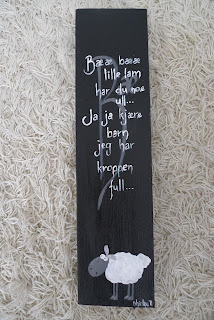 Bææ bææ
lille lam
har du noe
ull...
Ja ja kjære
barn
jeg har
kroppen
full...